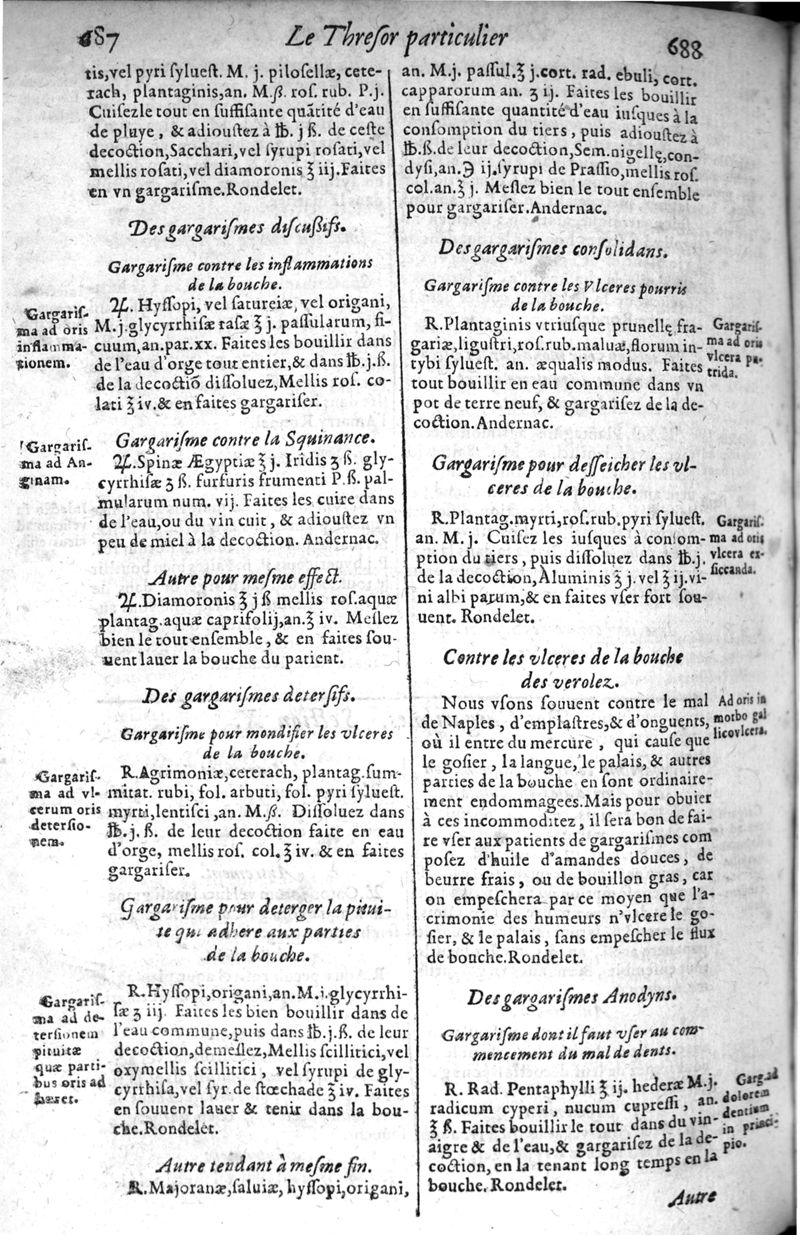 687 Le Threſor particulier 688
tis, vel pyri ſylueſt. M. j. piloſellæ, cete-
rach, plantaginis, an. M.ß. roſ. rub. P. j.
Cuiſezle tout en ſuffiſante quãtité d'eau
de pluye, & adiouſtez à ℔. j ß. de ceſte
decoction, Sacchari, vel ſyrupi roſati, vel
mellis roſati, vel diamoronis ℥ iij. Faites
en vn gargariſme. Rondelet.
Des gargariſmes diſcuſſifs.
Gargariſme contre les inflammations
de la bouche.
Gargariſ-
ma ad oris
inflamma-
tionem.
♃. Hyſſopi, vel ſatureiæ, vel origani,
M. j. glycyrrhiſæ raſæ ℥ j. paſſularum, fi-
cuum, an. par. xx. Faites les bouillir dans
de l'eau d'orge tout entier, & dans ℔. j. ß.
de la decoctiõ diſſoluez, Mellis roſ. co-
lati ℥ iv. & en faites gargariſer.
Gargariſme contre la Squinance.
Gargariſ-
ma ad An-
ginam.
♃. Spinæ Ægyptiæ ℥ j. Iridis ʒ ß. gly-
cyrrhiſæ ʒ ß. furfuris frumenti P. ß. pal-
mularum num. vij. Faites les cuire dans
de l'eau, ou du vin cuit, & adiouſtez vn
peu de miel à la decoction. Andernac.
Autre pour meſme effect.
♃. Diamoronis ℥ j ß mellis roſ. aquæ
plantag. aquæ caprifolij, an. ℥ iv. Meſlez
bien le tout enſemble, & en faites ſou-
uent lauer la bouche du patient.
Des gargariſmes deterſifs.
Gargariſme pour mondifier les vlceres
de la bouche.
Gargariſ-
ma ad vl-
cerum oris
deterſio-
nem.
R. Agrimoniæ, ceterach, plantag. ſum-
mitat. rubi, fol. arbuti, fol. pyri ſylueſt.
myrti, lentiſci, an. M.ß. Diſſoluez dans
℔. j. ß. de leur decoction faite en eau
d'orge, mellis roſ. col. ℥ iv. & en faites
gargariſer.
Gargariſme pour deterger la pitui-
te qui adhere aux parties
de la bouche.
Gargariſ-
ma ad de-
terſionem
pituitæ
quæ parti-
bus oris ad
hæret.
R. Hyſſopi, origani, an. M. j. glycyrrhi-
ſæ ʒ iij. Faites les bien bouillir dans de
l'eau commune, puis dans ℔. j. ß. de leur
decoction, demeſlez, Mellis ſcillitici, vel
oxymellis ſcillitici, vel ſyrupi de gly-
cyrthiſa, vel ſyr. de ſtœchade ℥ iv. Faites
en ſouuent lauer & tenir dans la bou-
che. Rondelet.
Autre tendant à meſme fin.
R. Majoranæ, ſaluiæ, hyſſopi, origani,
an. M. j. paſſul. ℥ j. cort. rad. ebuli, cort.
capparorum an. ʒ ij. Faites les bouillir
en ſuffiſante quantité d'eau iuſques à la
conſomption du tiers, puis adiouſtez à
℔. ß. de leur decoction, Sem. nigellę, con-
dyſi, an. ℈ ij. ſyrupi de Praſſio, mellis roſ.
col. an. ℥ j. Meſlez bien le tout enſemble
pour gargariſer. Andernac.
Des gargariſmes conſolidans.
Gargariſme contre les Vlceres pourris
de la bouche.
R. Plantaginis vtriuſque prunellę, fra-
gariæ, liguſtri, roſ. rub. maluæ, florum in-
tybi ſylueſt. an. æqualis modus. Faites
tout bouillir en eau commune dans vn
pot de terre neuf, & gargariſez de la de-
coction. Andernac.
Gargariſ-
ma ad oris
vlcera pu-
trida.
Gargariſme pour deſſeicher les vl-
ceres de la bouche.
R. Plantag. myrti, roſ. rub. pyri ſylueſt.
an. M. j. Cuiſez les iuſques à conſom-
ption du tiers, puis diſſoluez dans ℔. j.
de la decoction, Aluminis ʒ j. vel ʒ ij. vi-
ni albi parum, & en faites vſer fort ſou-
uent. Rondelet.
Gargariſ-
ma ad oris
vlcera ex-
ſiccanda.
Contre les vlceres de la bouche
des verolez.
Nous vſons ſouuent contre le mal
de Naples, d'emplaſtres, & d'onguents,
où il entre du mercure, qui cauſe que
le goſier, la langue, le palais, & autres
parties de la bouche en ſont ordinaire-
ment endommagees. Mais pour obuier
à ces incommoditez, il ſera bon de fai-
re vſer aux patients de gargariſmes com
poſez d'huile d'amandes douces, de
beurre frais, ou de bouillon gras, car
on empeſchera par ce moyen que l'a-
crimonie des humeurs n'vlcere le go-
ſier, & le palais, ſans empeſcher le flux
de bouche. Rondelet.
Ad oris in
morbo gal
lico vlcera.
Des gargariſmes Anodyns.
Gargariſme dont il faut vſer au com-
mencement du mal de dents.
R. Rad. Pentaphylli ℥ ij. hederæ M. j.
radicum cyperi, nucum cupreſſi, an.
℥ ß. Faites bouillir le tout dans du vin-
aigre & de l'eau, & gargariſez de la de-
coction, en la tenant long temps en la
bouche. Rondelet.
Gargad
dolorem
dentium
in princi-
pio.
Autre